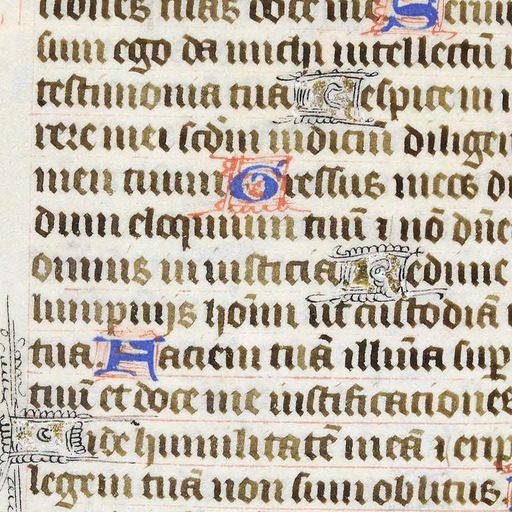 tiones tuas doce me Seruu
sum ego da michi intellectū
testimonia tua Aespice in
rere mei scd̄m iudiciū diligen
men tuum Gressus meos di
dum eloquium tuū ⁊ nō dn̄e
omnis iniusticia Redime
lumpniis hoīm ut custodiā
tua Faciem tuā illūīa sup
tuū et doce me iustificationes
Uide humilitatē meā ⁊ erip
legem tuā non sum oblitus